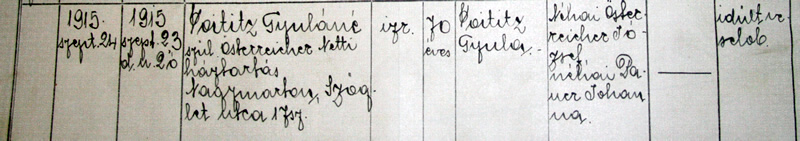 1915 szept. 24
1915 szept. 23 d. u. 2 ó
Poititz Gyuláné
szül Österreicher Netti
háztartás
Nagymarton, Szög-
let utca 17 sz.
izr.
70 éves
Poititz
Gyula.
Néhai Öster-
reicher Jó-
zsef
néhai Pa-
uer Johan-
na.
idült ve-
selob.